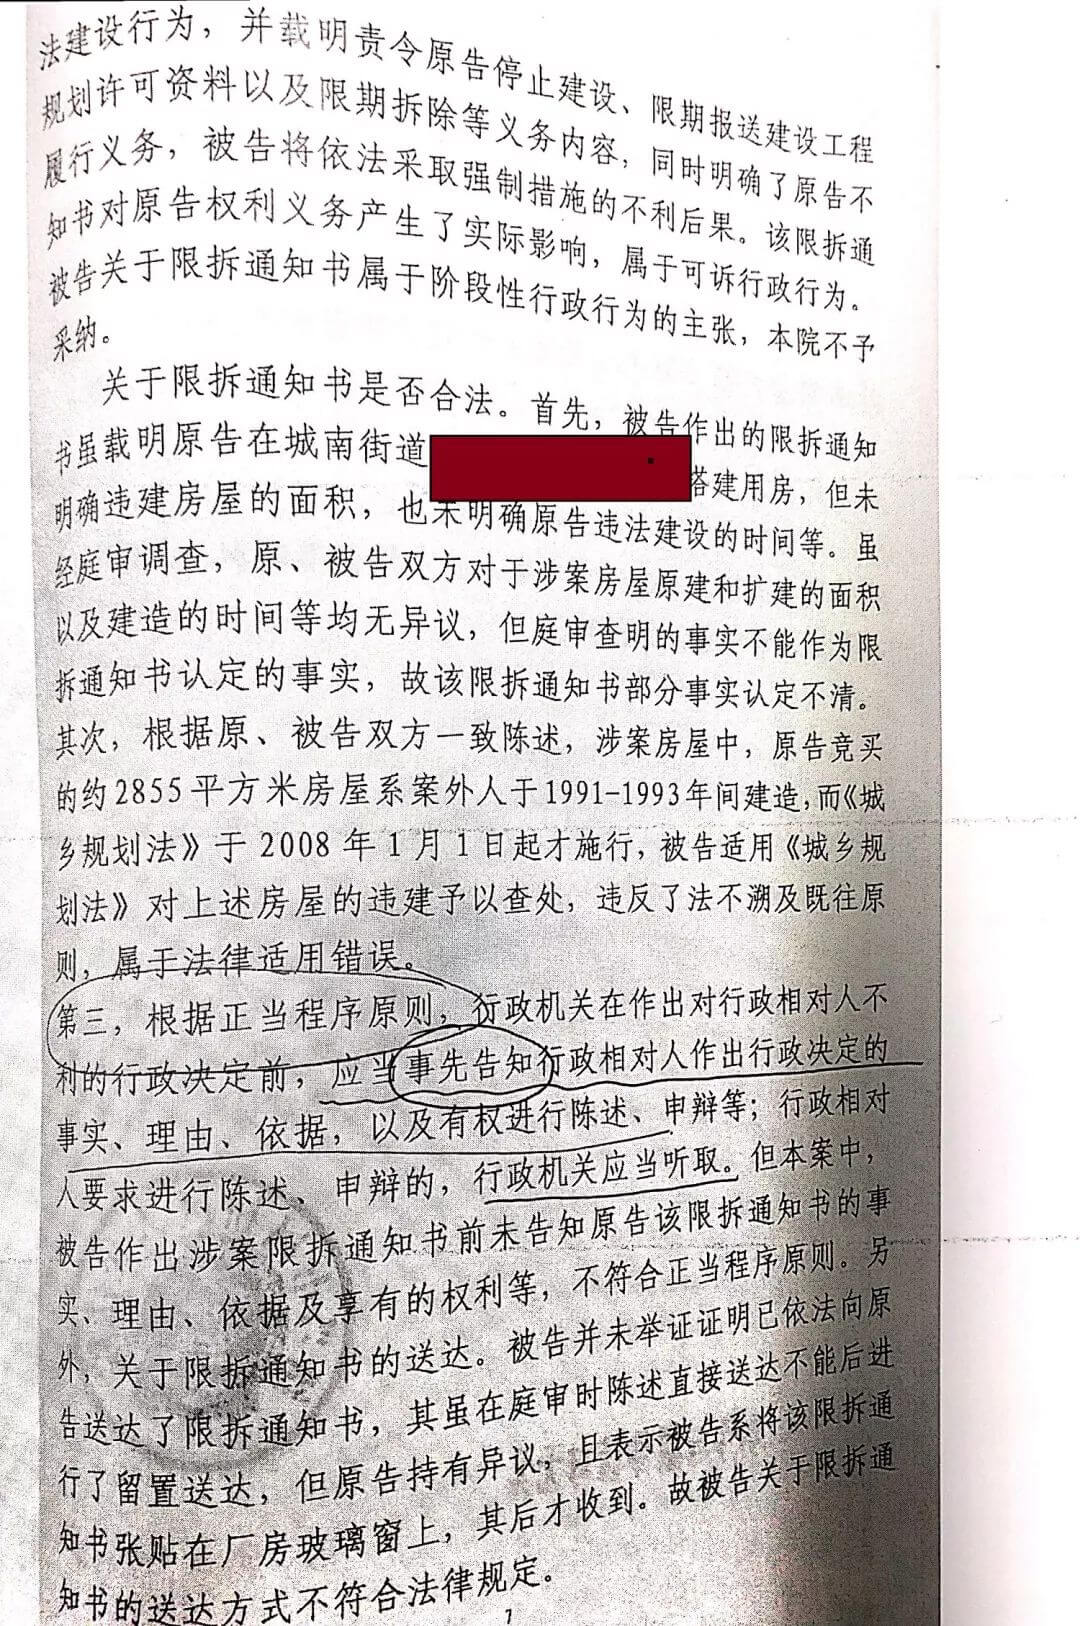 法建设行为，并载明责令原告停止建设、限期报送建设工程
规划许可资料以及限期拆除等义务内容，同时明确了原告不
履行义务，被告将依法采取强制措施的不利后果。该限拆通
知书对原告权利义务产生了实际影响，属于可诉行政行为。
被告关于限拆通知书属于阶段性行政行为的主张，本院不予
采纳。
关于限拆通知书是否合法。首先，被告作出的限拆通知
书虽载明原告在城南街道 搭建用房，但未
明确违建房屋的面积，也未明确原告违法建设的时间等。虽
经庭审调查，原、被告双方对于涉案房屋原建和扩建的面积
以及建造的时间等均无异议，但庭审查明的事实不能作为限
拆通知书认定的事实，故该限拆通知书部分事实认定不清。
其次，根据原、被告双方一致陈述，涉案房屋中，原告竞买
的约2855平方米房屋系案外人于1991-1993年间建造，而《城
乡规划法》于 2008 年 1 月 1 日起才施行，被告适用《城乡规
划法》对上述房屋的违建予以查处，违反了法不溯及既往原
则，属于法律适用错误。
第三，根据正当程序原则，行政机关在作出对行政相对人不
利的行政决定前，应当事先告知行政相对人作出行政决定的
事实、理由、依据，以及有权进行陈述、申辩等；行政相对
人要求进行陈述、申辩的，行政机关应当听取。但本案中，
被告作出涉案限拆通知书前未告知原告该限拆通知书的事
实、理由、依据及享有的权利等，不符合正当程序原则。另
外，关于限拆通知书的送达。被告并未举证证明已依法向原
告送达了限拆通知书，其虽在庭审时陈述直接送达不能后进
行了留置送达，但原告持有异议，且表示被告系将该限拆通
知书张贴在厂房玻璃窗上，其后才收到。故被告关于限拆通
知书的送达方式不符合法律规定。
7